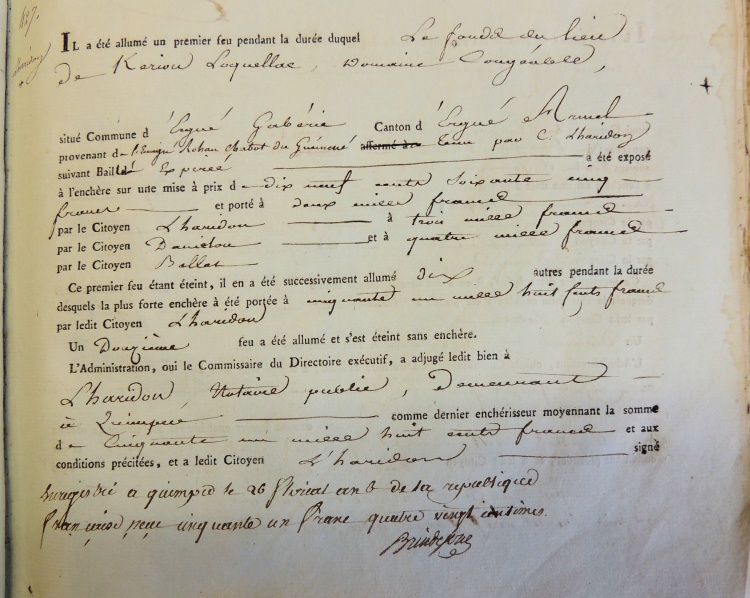 127.
Lharidon
IL a été allumé un premier feu pendant la durée duquel Le fonds du lieu
de Keriou Loquellac, Domaine Congéable,
situé Commune d'Ergué Gabéric Canton d'Ergué Armel
provenant de l'Emigré Rohan Chabot du Guémené affermé à tenu par C. Lharidon
suivant Bail Expiré a été exposé
à l'enchère sur une mise à prix de dix neuf cents soixante cinq
francs et porté à deux mille francs
par le Citoyen Lharidon à trois mille francs
par le Citoyen Danielou et à quatre mille francs
par le Citoyen Ballet
Ce premier feu étant éteint, il en a été successivement allumé dix autres pendant la durée
desquels la plus forte enchère à été portée à cinquante un mille huit cents francs
par ledit Citoyen Lharidon
Un Douzième feu a été allumé et s'est éteint sans enchère.
L'Administration, oui le Commissaire du Directoire exécutif, a adjugé ledit bien à
Lharidon, Notaire public, Demeurant
à Quimper comme dernier enchérisseur moyennant la somme
de Cinquante un mille huit cents francs et aux
conditions précitées, et a ledit Citoyen L'haridon signé
Enregistré a quimper le 26 floréal an 6 de la republique
française reçu cinquante un franc quatre vingt centimes.